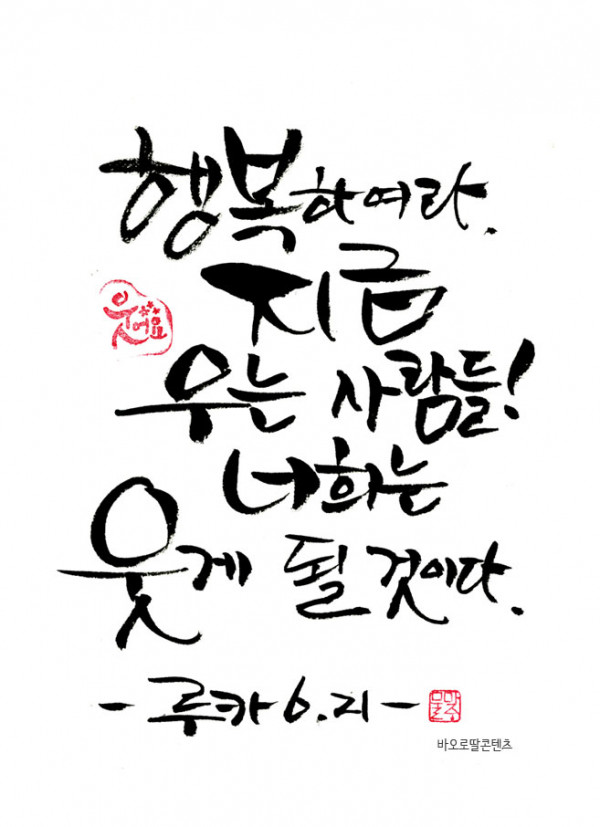 행복하여라.
지금
웃어요
우는 사람들!
너희는
웃게 될 것이다.
-루카 6.21-
바오로딸콘텐츠